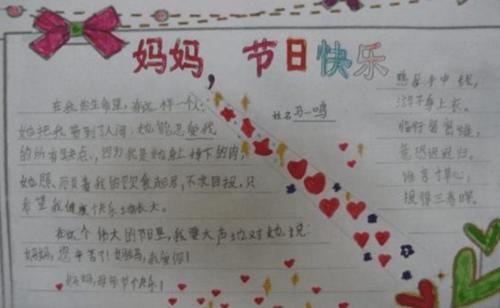 妈妈,节日快乐
在我的生命里,有这样一个人:
姓名马一鸣
她把我带到人间,她能忍受我
的所有缺点,因为我是她身上掉下的肉,
她照顾着我的饮食起居,不求回报,只
希望我健康快乐地长大。
在这个伟大的节日里,我要大声地对她说:
妈妈,您辛苦了!妈妈,我爱你!
妈妈,母亲节快乐!
慈母手中线,
游子身上衣。
临行密密缝,
意恐迟迟归。
谁言寸草心,
报得三春晖。